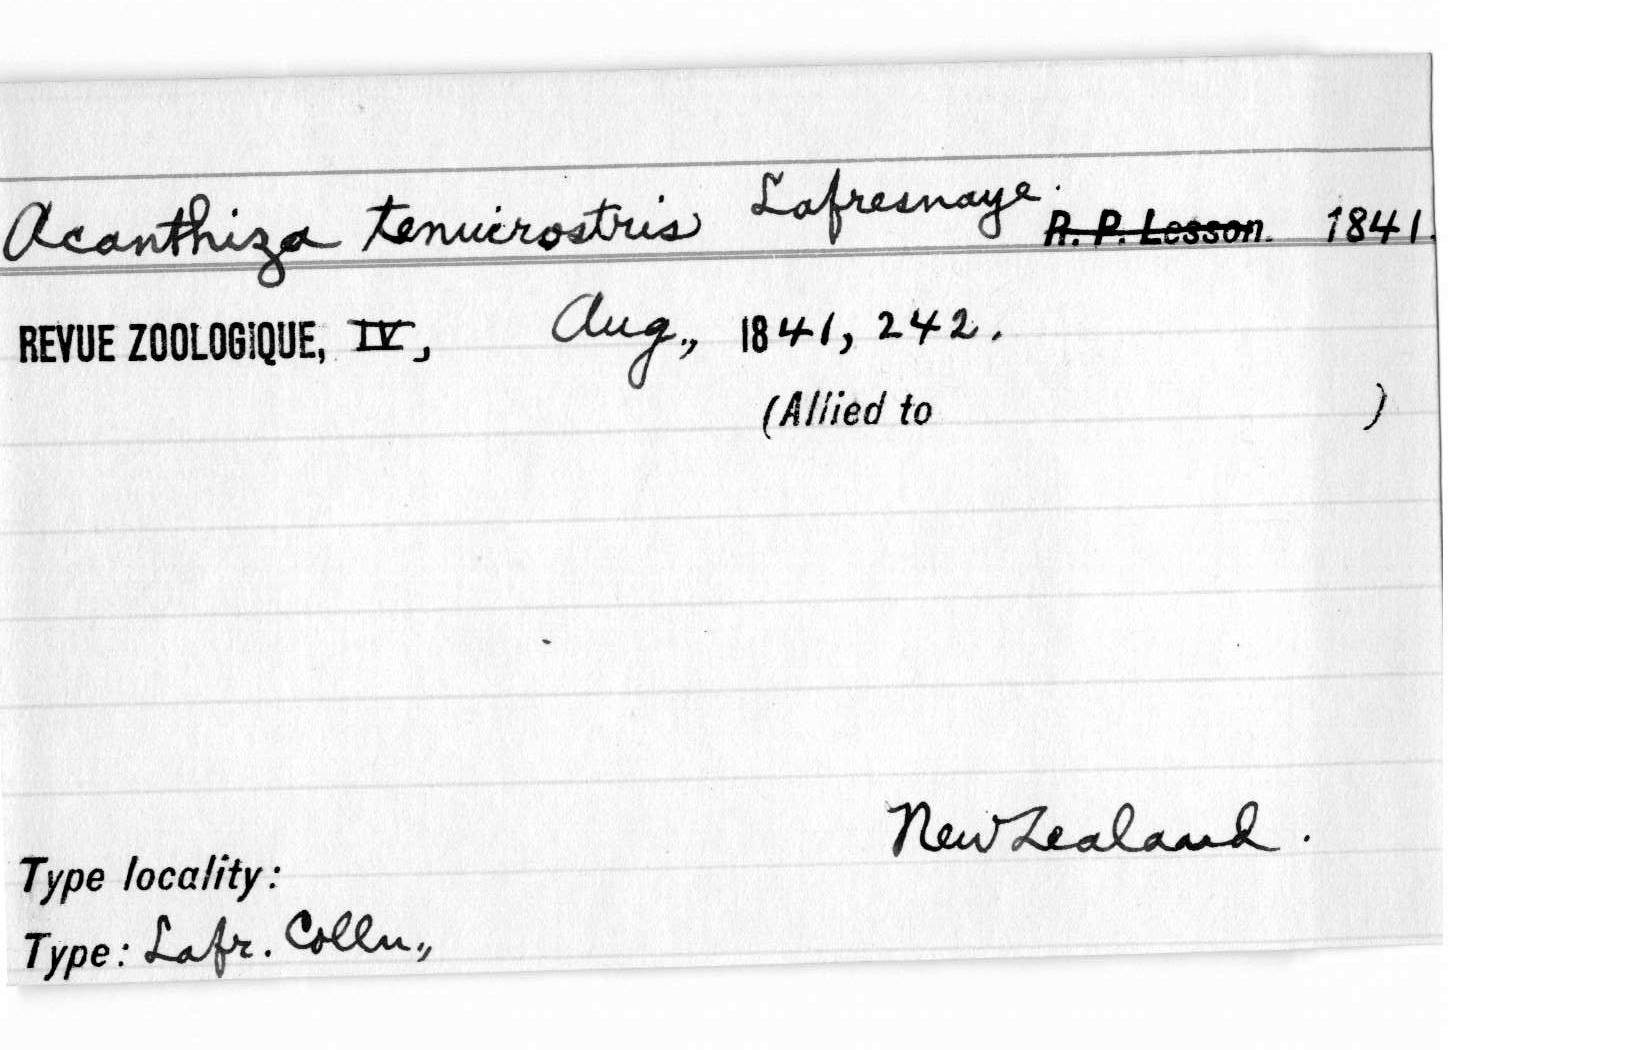 Acanthiza tenuirostris Lafresnaye. R. P. Lesson. 1841.
REVUE ZOOLOGIQUE, IV, Aug., 1841, 242.
(Allied to )
New Zealand.
Type locality:
Type: Lafr. Colln.,